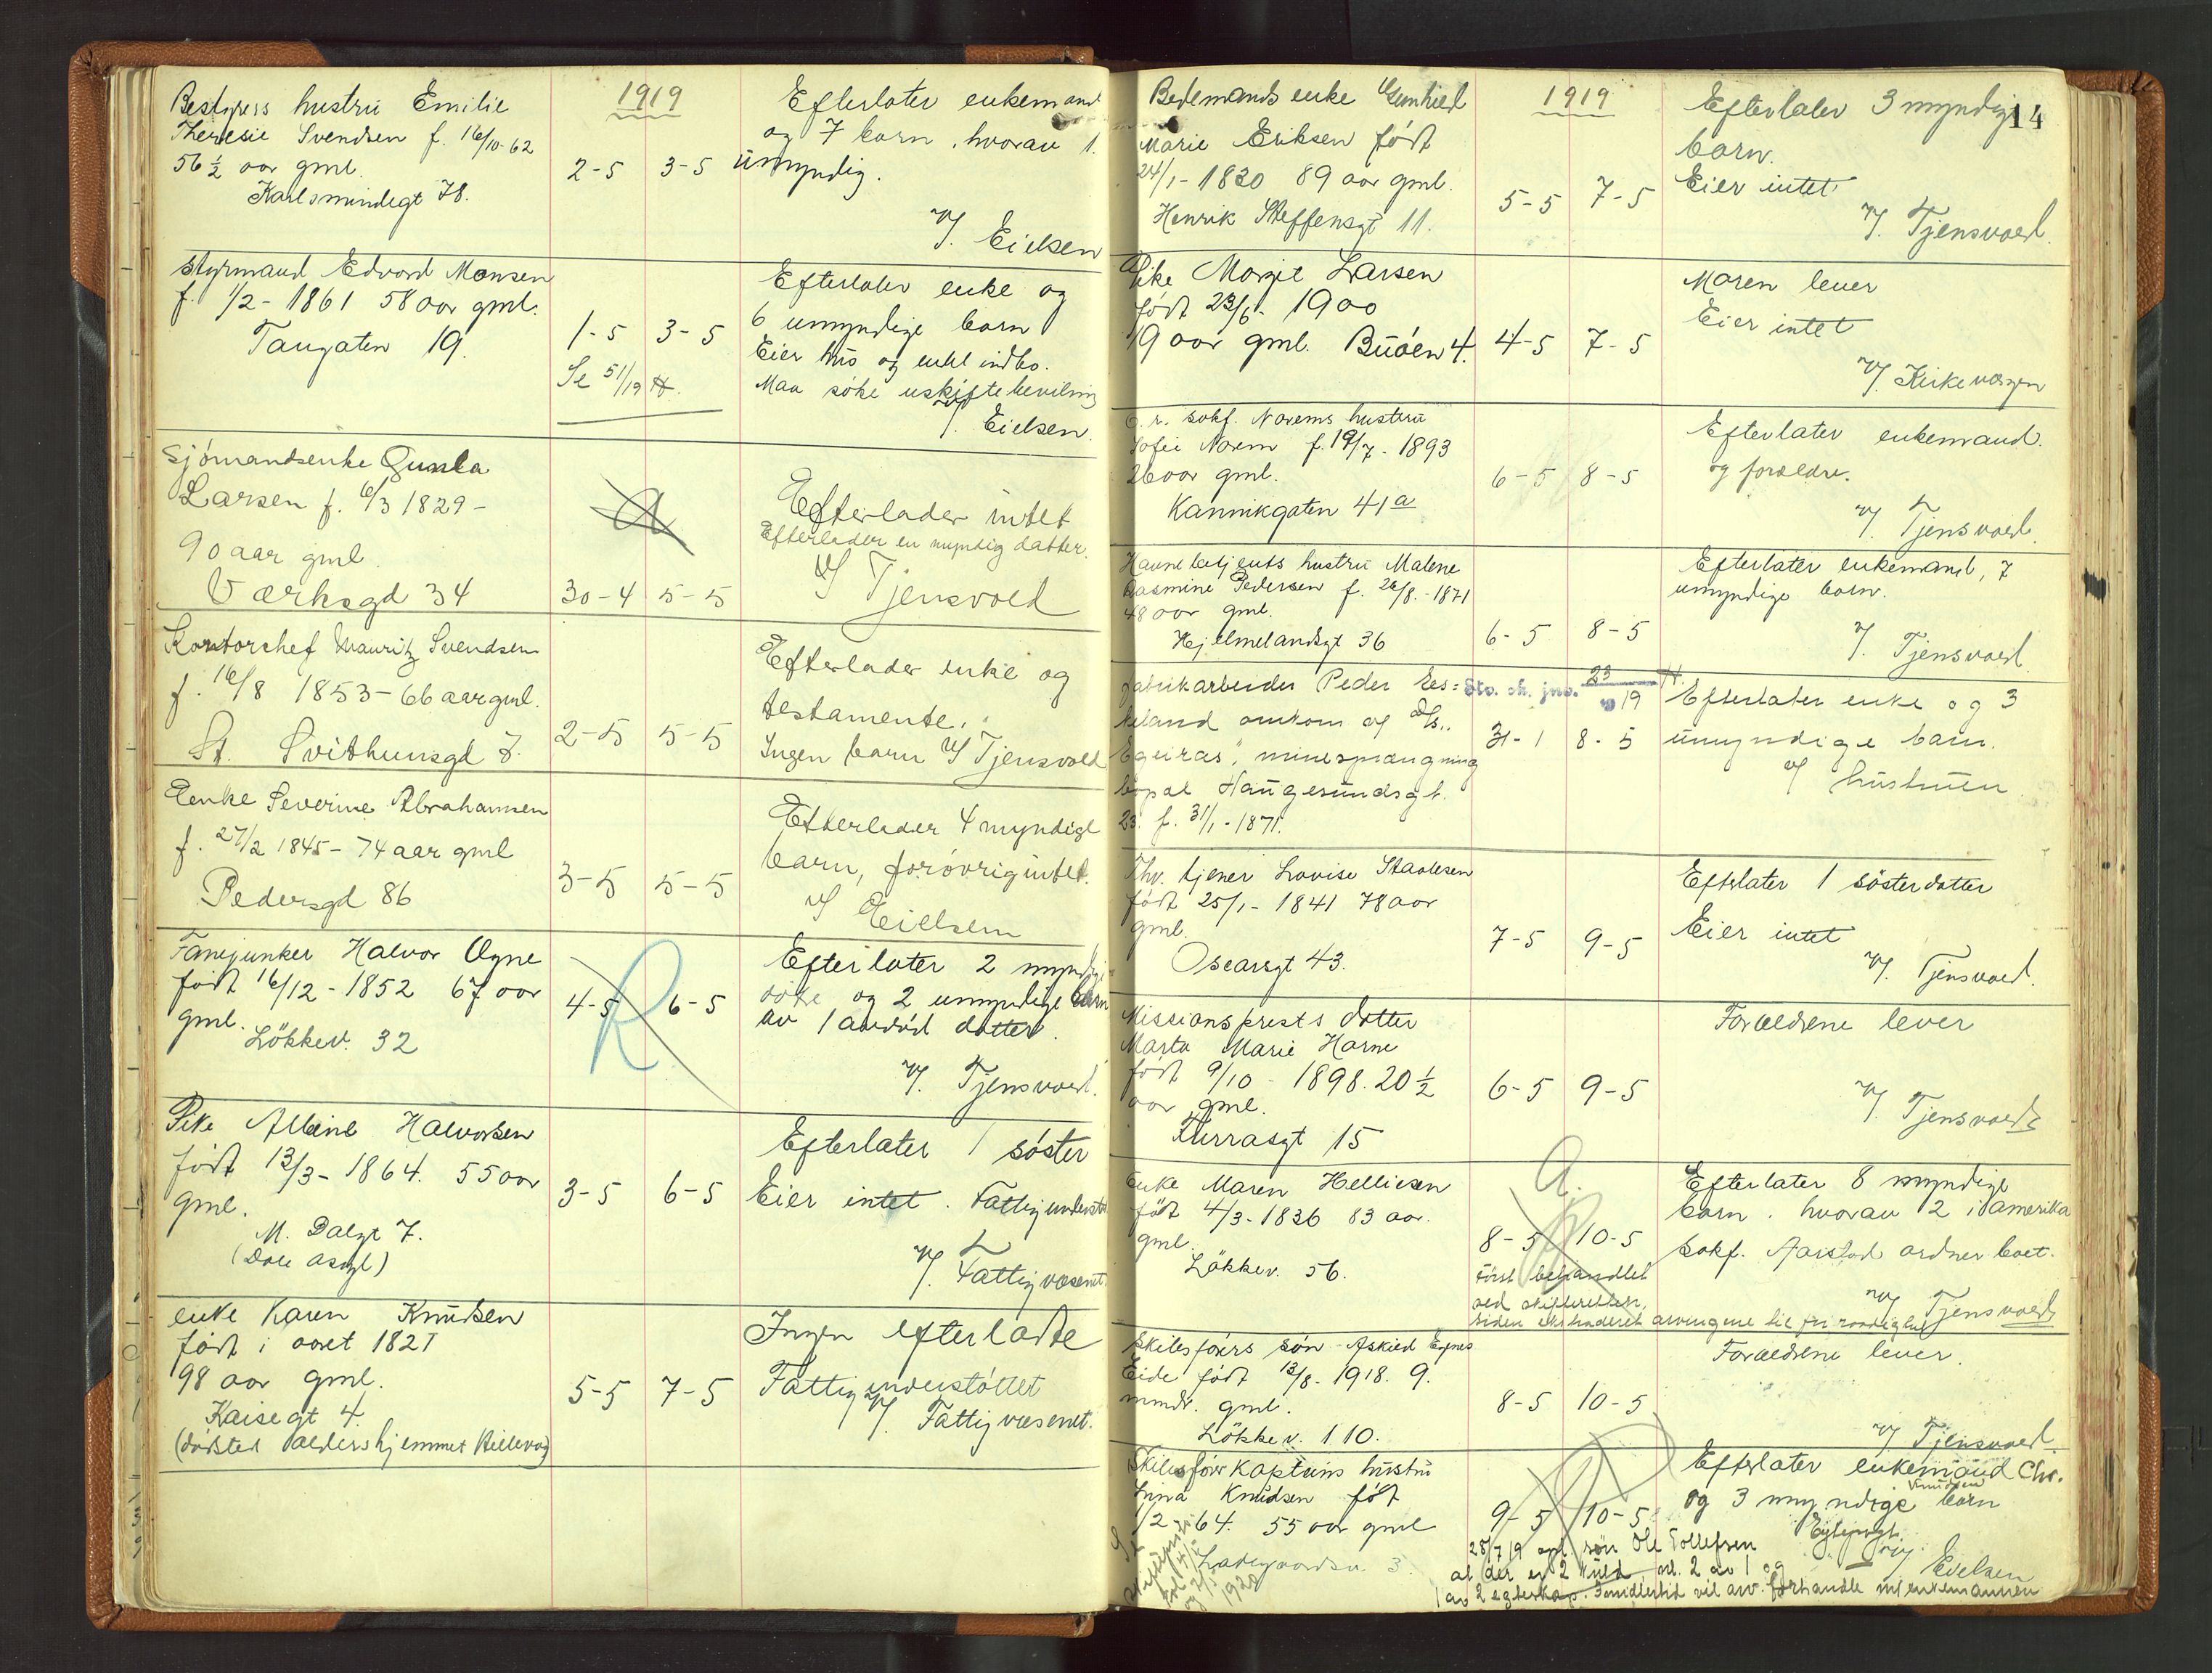 Bestyrers hustru Emilie
Theresie Svendsen f. 16/10-62
56 1/2 aar gml.
Karlsmindegt 78.
1919
2-5 3-5
Efterlater enkemand
og 7 barn, hvorav 1.
umyndig.
v/. Eielsen
Styrmand Edvard Monsen
f. 1/2-1861 58 aar gml.
Taugaten 19.
1-5 3-5
Se 51/19 H.
Efterlater enke og
6 umyndige barn
Eier hus og enkl indbo.
Maa söke uskiftebevilning
v/. Eielsen.
Sjömandsenke Gunla
Larsen f. 6/3 1829-
90 aar gml.
Værksgd 34
a
30-4 5-5
Efterlader intet
Efterlader en myndig datter.
v/ Tjensvold
Kontorchef Mauritz Svendsen
f. 16/8 1853-66 aar gml.
St. Svithunsgd 7.
2-5 5-5
Efterlader enke og
testamente.
Ingen barn v/ Tjensvold
Enke Severine Abrahamsen
f. 27/2 1845-74 aar gml
Pedersgd 86
3-5 5-5
Efterlader 4 myndige
barn, forövrig intet.
v/ Eielsen
Fanejunker Halvor Ogne
født 16/12-1852 67 aar
gml.
Lökkev. 32
4-5 6-5
R
Efterlater 2 myndige
döttre og 2 umyndige barn
av 1 avdöd datter.
v/. Tjensvold.
Pike Albine Halvorsen
født 13/3-1864. 55 aar
gml.
M. Dalgt 7.
(Dale asyl)
3-5 6-5
Efterlater 1 söster
Eier intet. Fattigunderst.
v/. Fattigvæsenet.
enke Karen Knudsen
født i aaret 1821
98 aar gml.
Kaisegt 4.
(dödsted alders hjemmet Hillevag)
5-5 7-5
Ingen efterladte
Fattigunderstöttet
v/. Fattigvæsenet.
14
Bedemands enke Gunhild
Marie Eriksen født
24/1-1830 89 aar gml.
Henrik Steffensgt 11.
1919
5-5 7-5
Efterlater 3 myndige
barn.
Eier intet
v/. Tjensvold.
Pike Margit Larsen
født 23/6-1900
19 aar gml. Buöen 4.
4-5 7-5
Moren lever
Eier intet
v/. Kirkevergen
O. r. sakf. Norems hustru
Sofie Norem f. 19/7-1893
26 aar gml.
Kannikgaten 41a
6-5 8-5
Efterlater enkemand.
og forældre.
v/. Tjensvold.
Havnebetjents hustru Malene
Rasmine Pedersen f. 26/8.-1871
48 aar gml.
Hjelmelandsgt 36
6-5 8-5
Efterlater enkemand, 7
umyndige barn.
v/. Tjensvold.
fabrikarbeider Peder Ees=
keland omkom og D/s.
"Egeiras", minesprængning
bopæl Haugesundsgt.
23. f. 31/1-1871.
Stv. sk. jno. 23/19 H.
31-1 8-5
Efterlater enke og 3
umyndige barn.
v/ hustruen
Fhv. tjener Lovise Staalesen
født 25/1-1841 78 aar
gml.
Oscarsgt 43.
7-5 9-5
Efterlater 1 söster datter
Eier intet
v/. Tjensvold.
Missionsprests datter
Marta Marie Harne
født 9/10-1898. 20 1/2
aar gml.
Furrasgt 15
6-5 9-5
Forældrene lever
v/. Tjensvold
Enke Maren Helliesen
født 4/3-1836 83 aar.
gml.
Lökkev. 56.
a.
8-5 10-5
Først behandlet
ved skifteretten,
siden ekstraderet arvingene til fri raadighet
Efterlater 8 myndige
barn. hvorav 2 i Amerika
Sakf. Aarstad ordner boet.
v/ Tjensvold
Skibsförers sön Askild Egnes
Eide født 13/8-1918. 9.
mndr. gml.
Lökkev. 110.
8-5 10-5
Forældrene lever.
v/ Tjensvold.
Skibsförer kapteins hustru
Inna Knudsen født
1/2-64. 55 aar gml
Ladegaardsv. 3.
9-5 10-5
Efterlater enkemand Chr.
Knudsen
og 3 myndige barn
v/. Eielsen
28/7 19 opl. sön Ole Tollefsen
at der er 2 kuld, nl. 2 av 1 og
1 av 2 egteskap. Imidlertid vil arv. forhandle m/ enkemannen
1920